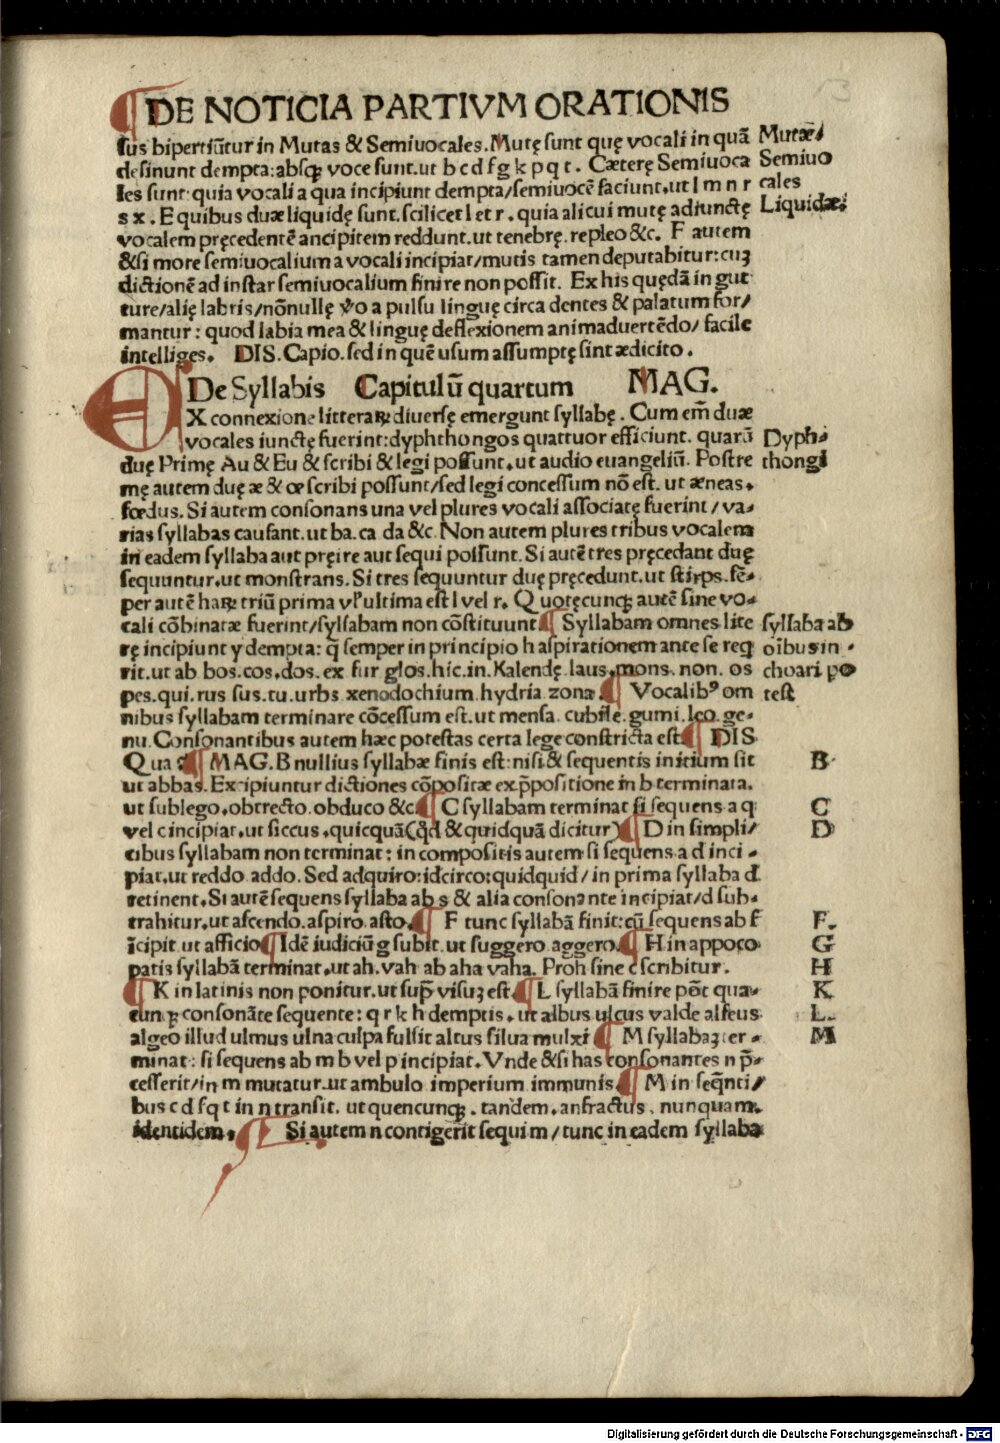 DE NOTICIA PARTIVM ORATIONIS
sus bipertiūtur in Mutas & Semiuocales. Mutę sunt quę vocali in quā
desinunt dempta: absqꝫ voce sunt. ut b c d f g k p q t. Cæterę Semiuoca
les sunt: quia vocali a qua incipiunt dempta/semiuocē faciunt. ut l m n r
s x. E quibus duæ liquidę sunt. scilicet l et r. quia alicui mutę adiunctę
vocalem pręcedentē ancipitem reddunt. ut tenebrę. repleo &c. F autem
&si more semiuocalium a vocali incipiat/mutis tamen deputabitur: cuꝫ
dictionē ad instar semiuocalium finire non possit. Ex his quędā in gut
ture/alię labris/nōnullę v̊o a pulsu linguę circa dentes & palatum for/
mantur: quod labia mea & linguę deflexionem animaduertēdo/ facile
intelliges. DIS. Capio. sed in quē usum assumptę sint ædicito.
De Syllabis Capitulū quartum MAG.
EX connexione litteraꝝ diuersę emergunt syllabę. Cum em̄ duæ
vocales iunctę fuerint: dyphthongos quattuor efficiunt. quarū
duę Primę Au & Eu & scribi & legi possunt. ut audio euangeliū. Postre
mę autem duę æ & œ scribi possunt/sed legi concessum nō est. ut æneas.
fœdus. Si autem consonans una vel plures vocali associatę fuerint/ va-
rias syllabas causant. ut ba. ca da &c. Non autem plures tribus vocalem
in eadem syllaba aut pręire aut sequi possunt. Si autē tres pręcedant duę
sequuntur. ut monstrans. Si tres sequuntur duę pręcedunt. ut stirps. sē-
per autē haꝝ triū prima vl̕ ultima est l vel r. Quotęcunqꝫ autē sine vo-
cali cōbinatæ fuerint/syllabam non cōstituunt ¶ Syllabam omnes litte
rę incipiunt y dempta: q̄ semper in principio h aspirationem ante se req̄
rit. ut ab bos. cos. dos. ex fur glos. hic. in. Kalendę laus. mons. non. os
pes. qui. rus sus. tu. urbs xenodochium hydria zona ¶ Vocalibꝰ om
nibus syllabam terminare cōcessum est. ut mensa. cubile. gumi. leo. ge-
nu. Consonantibus autem hæc potestas certa lege constricta est ¶ DIS
Qua? ¶ MAG. B nullius syllabæ finis est: nisi & sequentis initium sit
ut abbas. Excipiuntur dictiones cōpositæ ex p̄positione in b terminata.
ut sublego. obtrecto. obduco &c ¶ C syllabam terminat si sequens a q
vel c incipiat. ut siccus. quicquā (qd̄ & quidquā dicitur) ¶ D in simpli/
cibus syllabam non terminat: in compositis autem si sequens a d inci-
piat. ut reddo addo. Sed adquiro: idcirco: quidquid/ in prima syllaba d
retinent. Si autē sequens syllaba ab s & alia consonante incipiat/d sub-
trahitur. ut ascendo. aspiro. asto. ¶ F tunc syllabā finit: cū sequens ab f
īcipit. ut afficio ¶ Idē iudiciū g subit. ut suggero aggero. ¶ H in appoco
patis syllabā terminat. ut ah. vah ab aha vaha. Proh sine c scribitur.
¶ K in latinis non ponitur. ut sup̄ visuꝫ est. ¶ L syllabā finire pōt qua-
cunqꝫ consonāte sequente: q r k h demptis. ut albus ulcus valde alfeus
algeo illud ulmus ulna culpa fulsit altus silua mulxi ¶ M syllabaꝫ ter-
minat: si sequens ab m b vel p incipiat. Vnde &si has consonantes n p̄-
cesserit/in m mutatur. ut ambulo imperium immunis. ¶ M in seq̄nti/
bus c d f q t in n transit. ut quencunqꝫ. tandem. anfractus. nunquam.
identidem. ¶ Si autem n contigerit sequi m/ tunc in eadem syllaba
Mutæ
Semiuo
cales
Liquidæ
Dyph-
thongi
syllaba ab
oībus in-
choari po
test
B
C
D
F.
G
H
K
L.
M
Digitalisierung gefördert durch die Deutsche Forschungsgemeinschaft - DFG